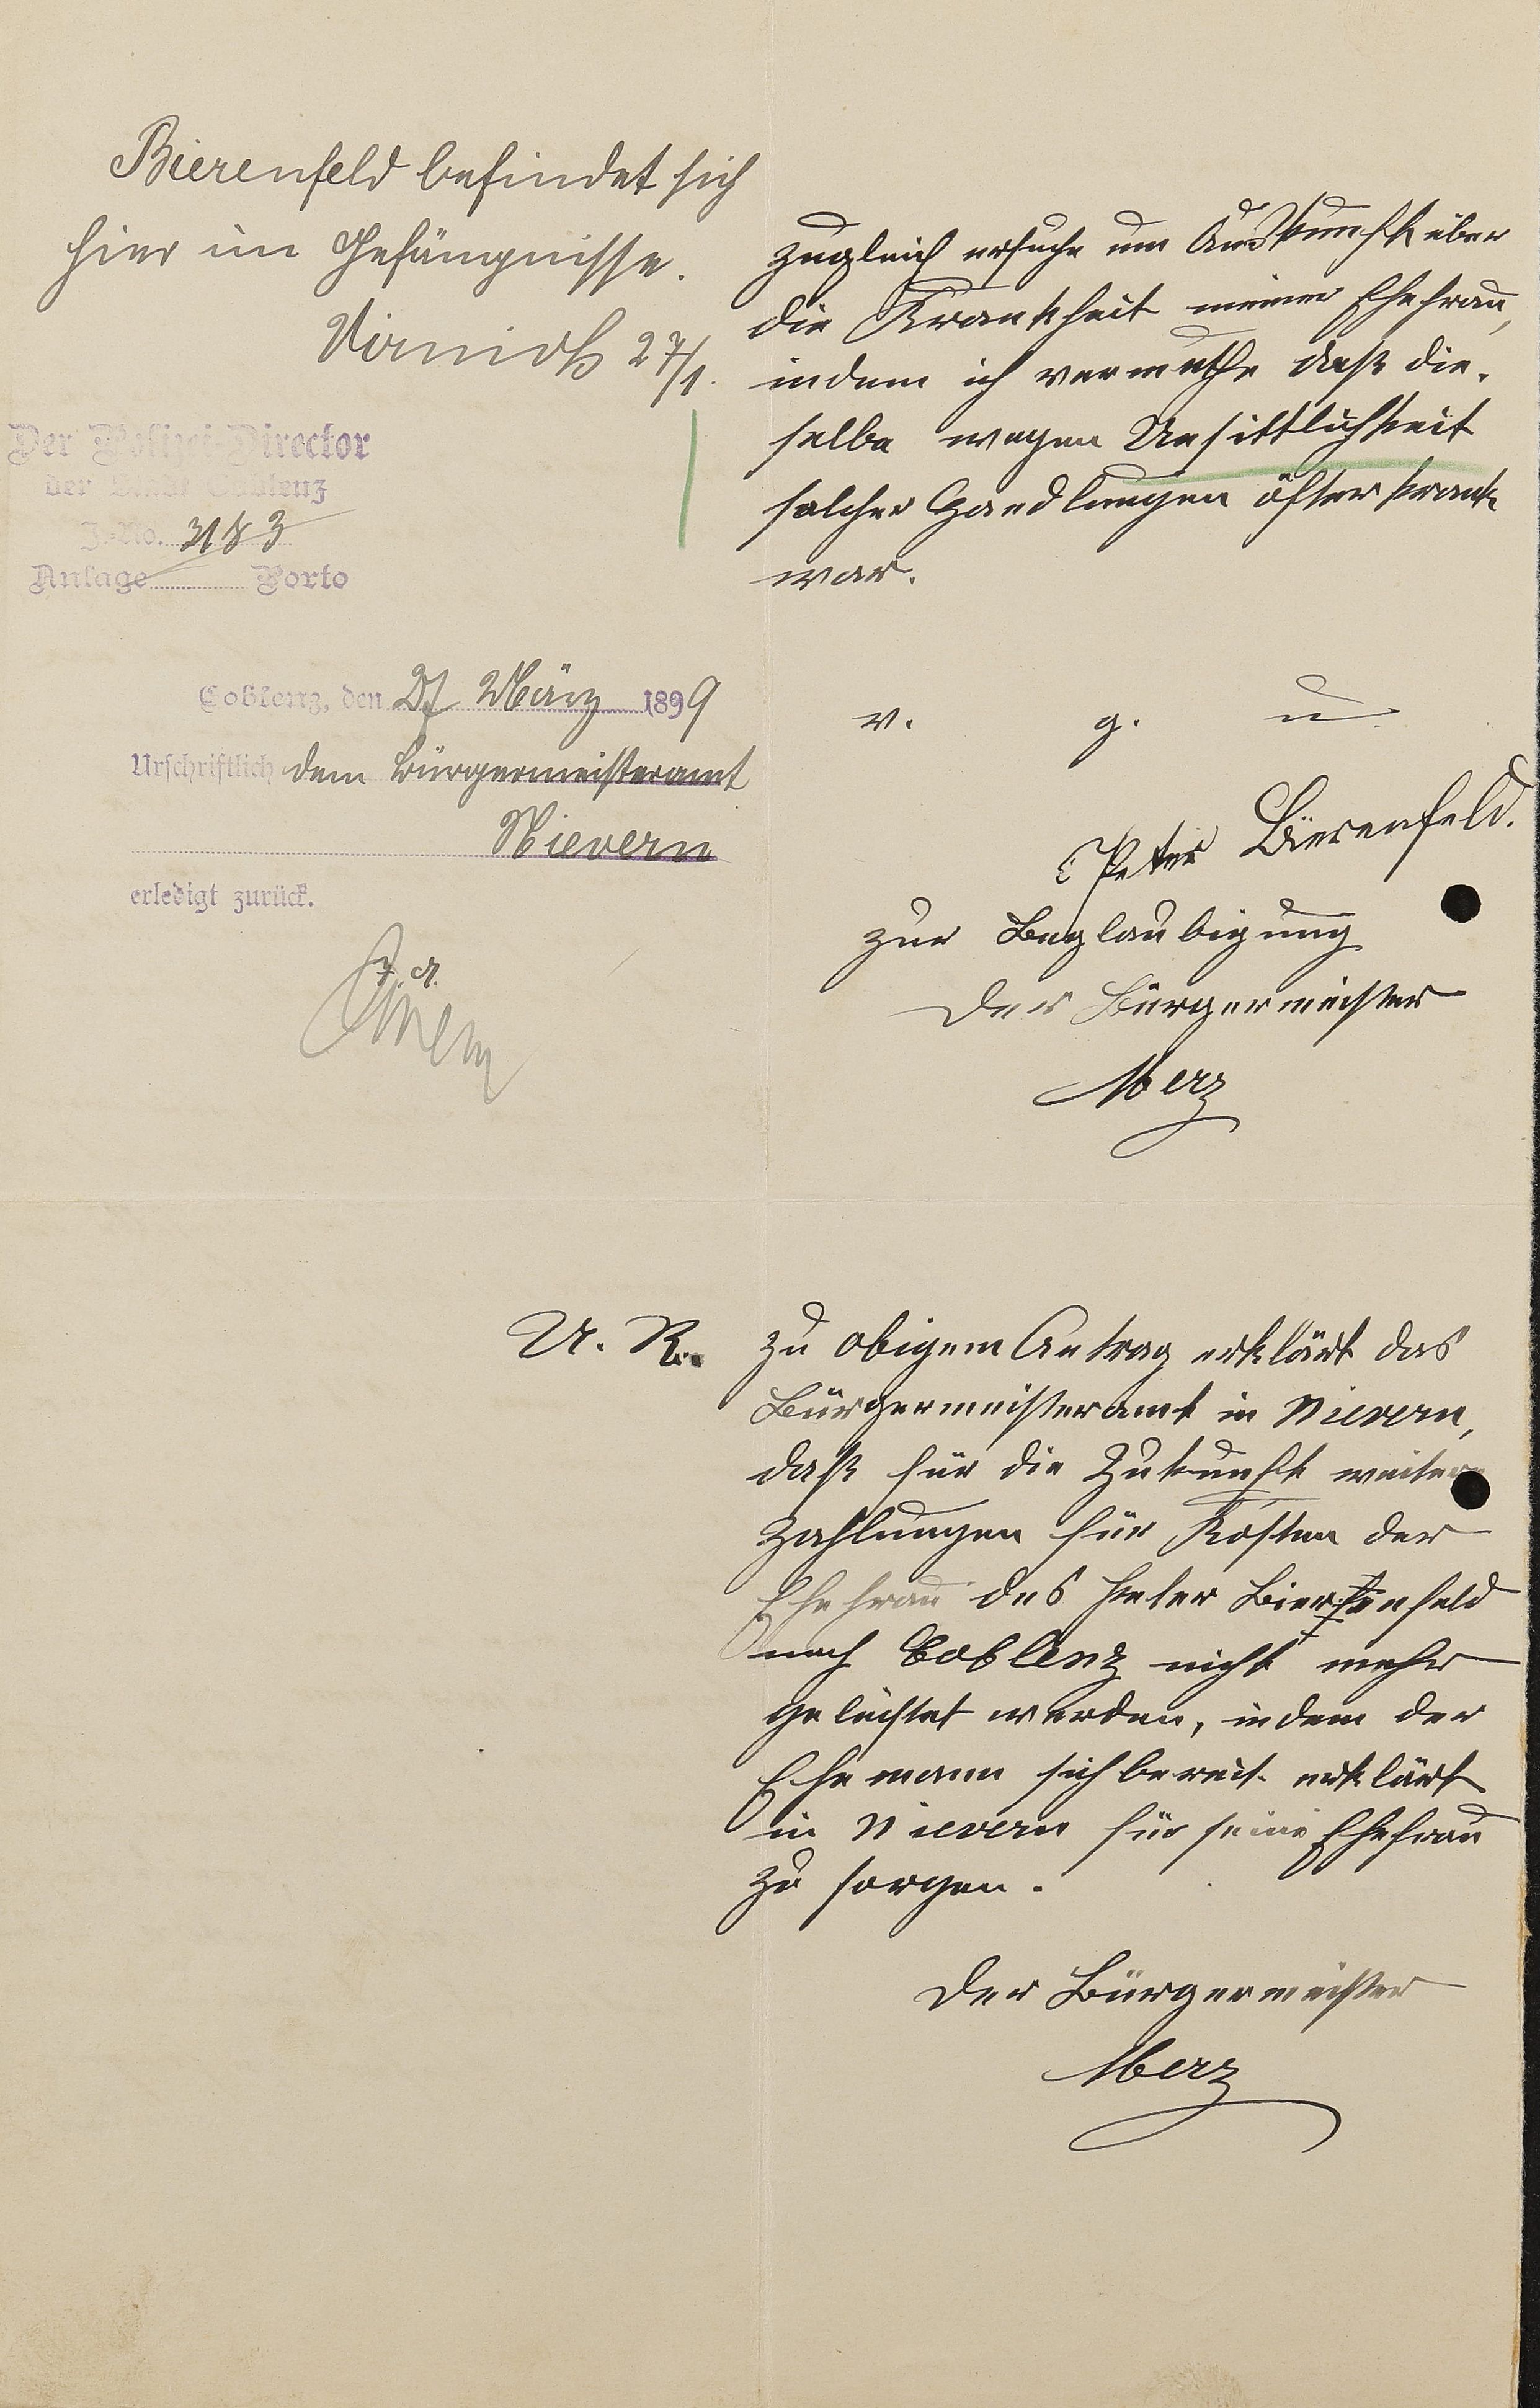 Bierenfeld befindet sich
hier im Gefängnisse.
27/1.
Der Polizei Director
der Stadt Coblenz
J.-No. 3183
Anlage Porto
Coblenz, den 27 März 1899
Urschriftlich dem Bürgermeisteramt
Nievern
erledigt zurück.
zugleich ersuche um Auskunft über
die Krankheit meiner Ehefrau,
indem ich vermuthe daß die-
selbe wegen Unsittlichkeit
solcher Handlungen öfter krank
war.
v. g. u
Peter Bierenfeld.
zur Beglaubigung
Der Bürgermeister
Merz
U. R. zu obigem Antrag erklärt das
Bürgermeisteramt in Nievern,
daß für die Zukunft weitere
Zahlungen für Kosten der
Ehefrau des Peter Bierenfeld
nach Coblenz nicht mehr
geleistet werden, indem der
Ehemann sich bereit erklärt
in Nievern für seine Ehefrau
zu sorgen.
Der Bürgermeister
Merz